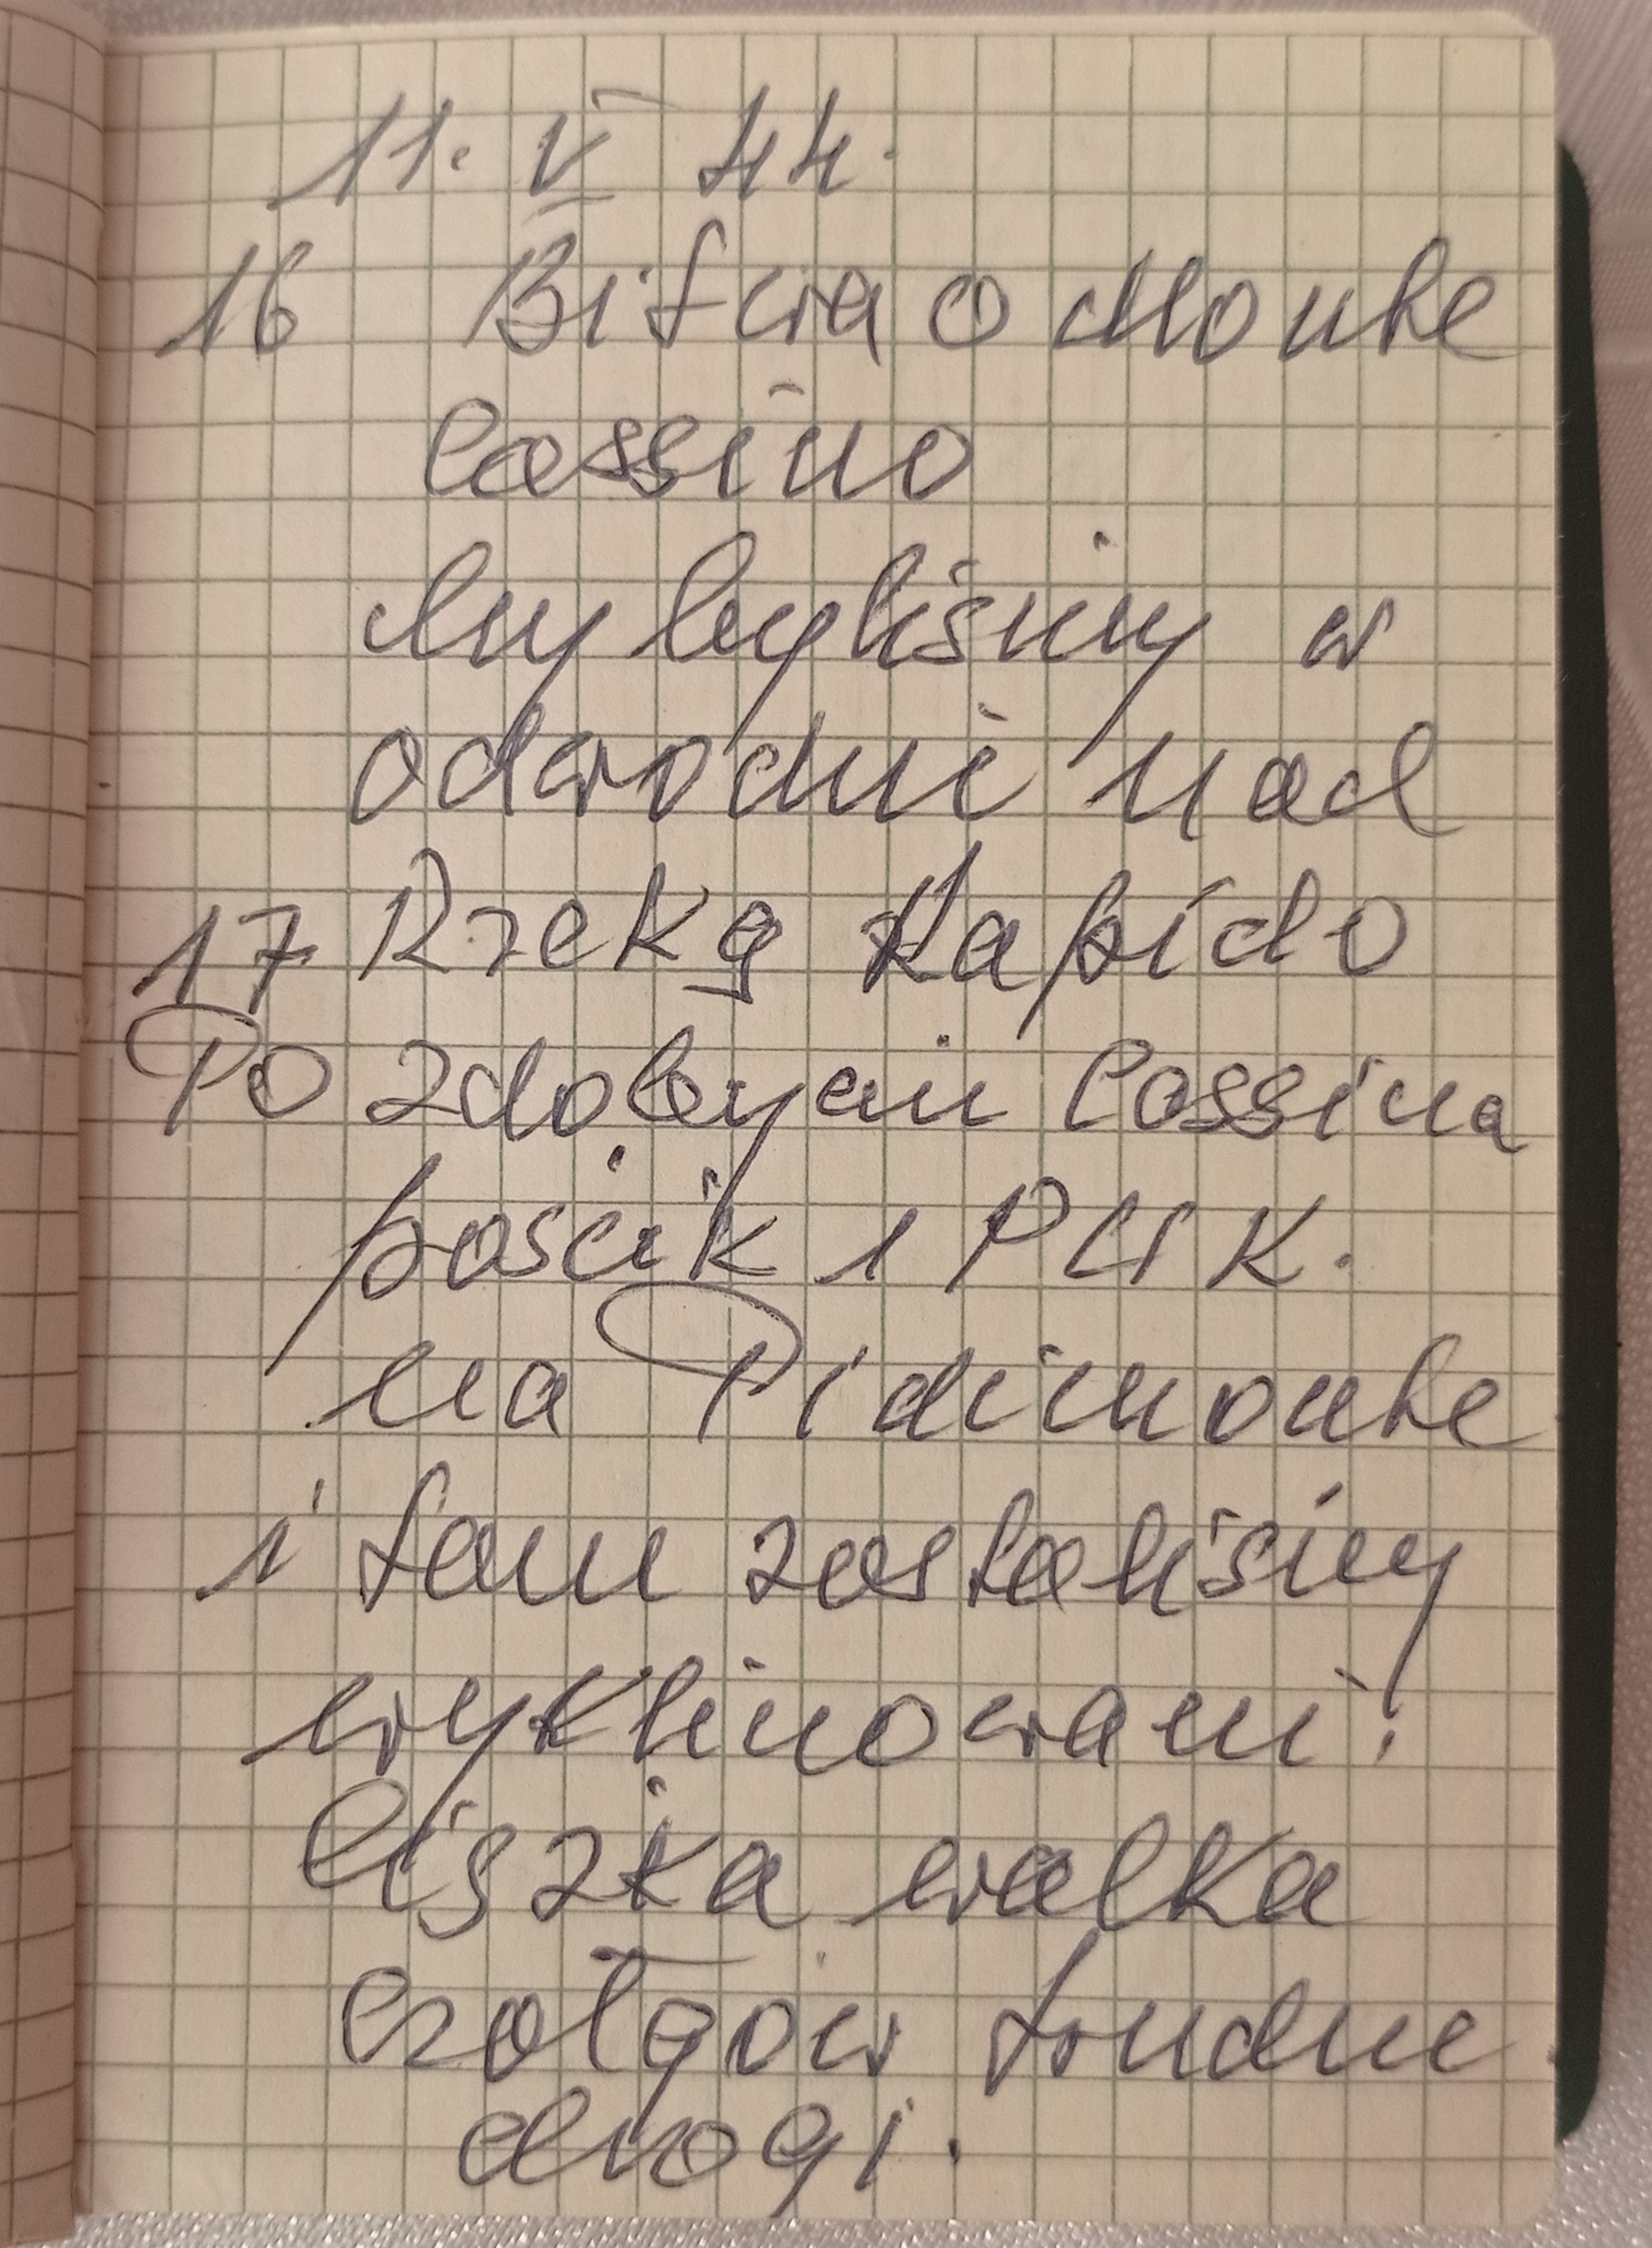 11. V 44.
16 Bitwa o Monte
Cassino
My byliśmy w
odwodzie nad
17 Rzeką Rapido
Po zdobyciu Cassina
pościk 1 PUK.
na Pidimonte
i tam zostaliśmy
wyklinowani!
Ciszka walka
czołgów trudne
drogi.